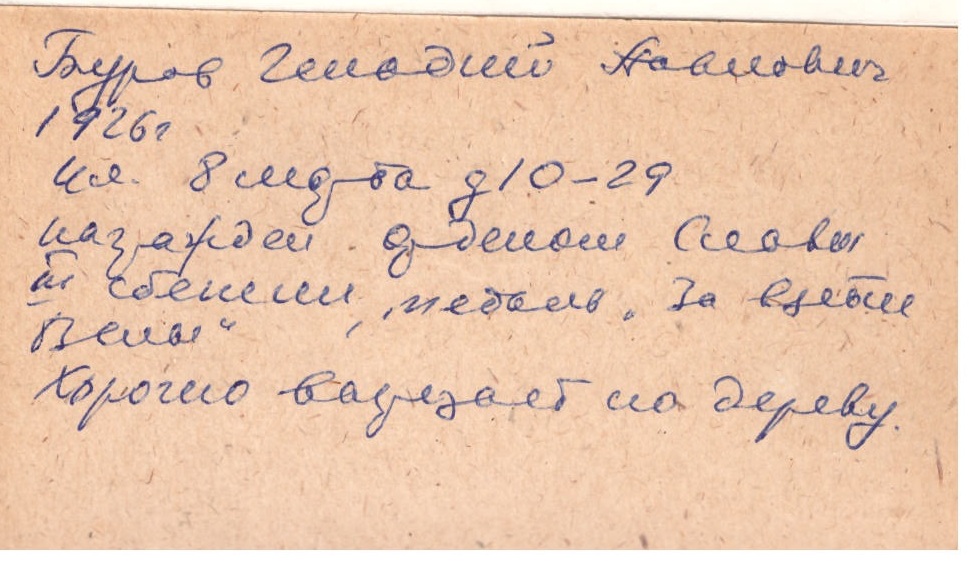 Буров Генадий Павлович
1926г
ул. 8 марта д 10-29
награжден орденом Славы
III степени, медаль „За взятие
Вены“
Хорошо вырезает по дереву.